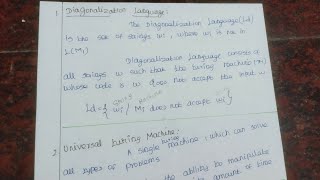 1 Diagonalization Language:
The Diagonalization Language (Ld)
is the set of strings wi, where wi is not in
L(Mi)
Diagonalization Language consists of
all strings w such that the turing machine (M)
whose code is w does not accept the input w
Ld = { wi / Mi does not accept wi }
2 Universal turing Machine:
A single machine which can solve
all types of problems
the ability to manipulate
amount of time